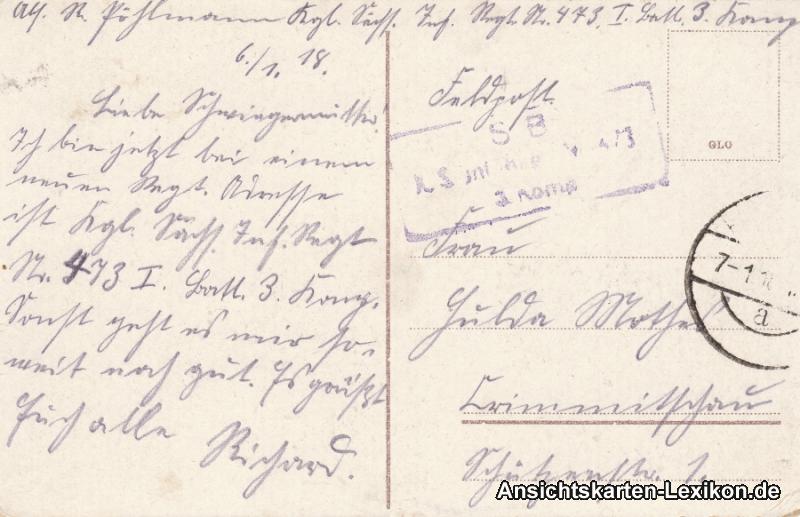 Abs. R. Pöhlmann Kgl. Sächs. Inf. Regt Nr. 473, I. Batl. 3. Komp
6./1. 18.
Liebe Schwiegermutter!
Ich bin jetzt bei einem
neuen Regt. Adresse
ist Kgl. Sächs. Inf. Regt
Nr. 473 I. Batl. 3. Komp.
Sonst geht es mir so-
weit noch gut. Es grüßt
Euch alle
Richard.
Feldpost.
S B
473
3 Komp
GLO
Frau
Hulda Mothes
Crimmitschau
Schützenstr. 1.
7-1
a
Ansichtskarten-Lexikon.de